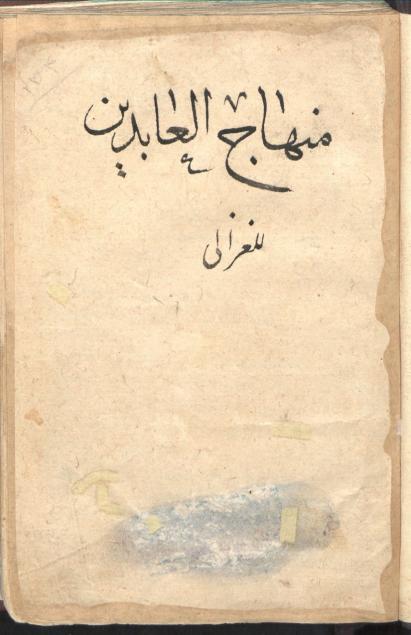 منهاج العابدين
للغزالي